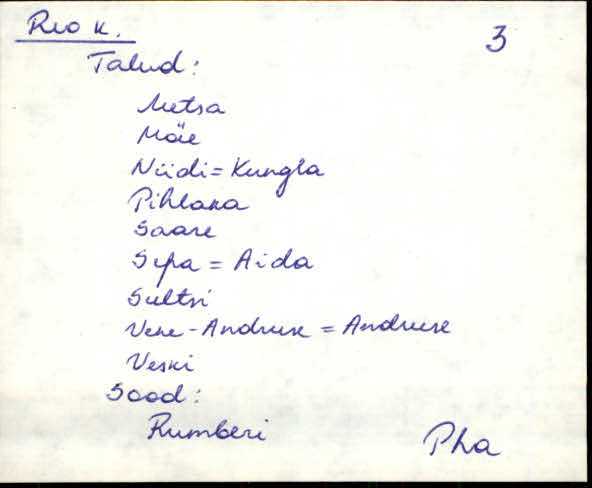 Reo k. 3
Talud:
Metsa
Mäe
Niidi = Kungla
Pihlaka
Saare
Sepa = Aida
Sultsi
Vene-Andruse = Andruse
Veski
Sood:
Rumberi
Pha